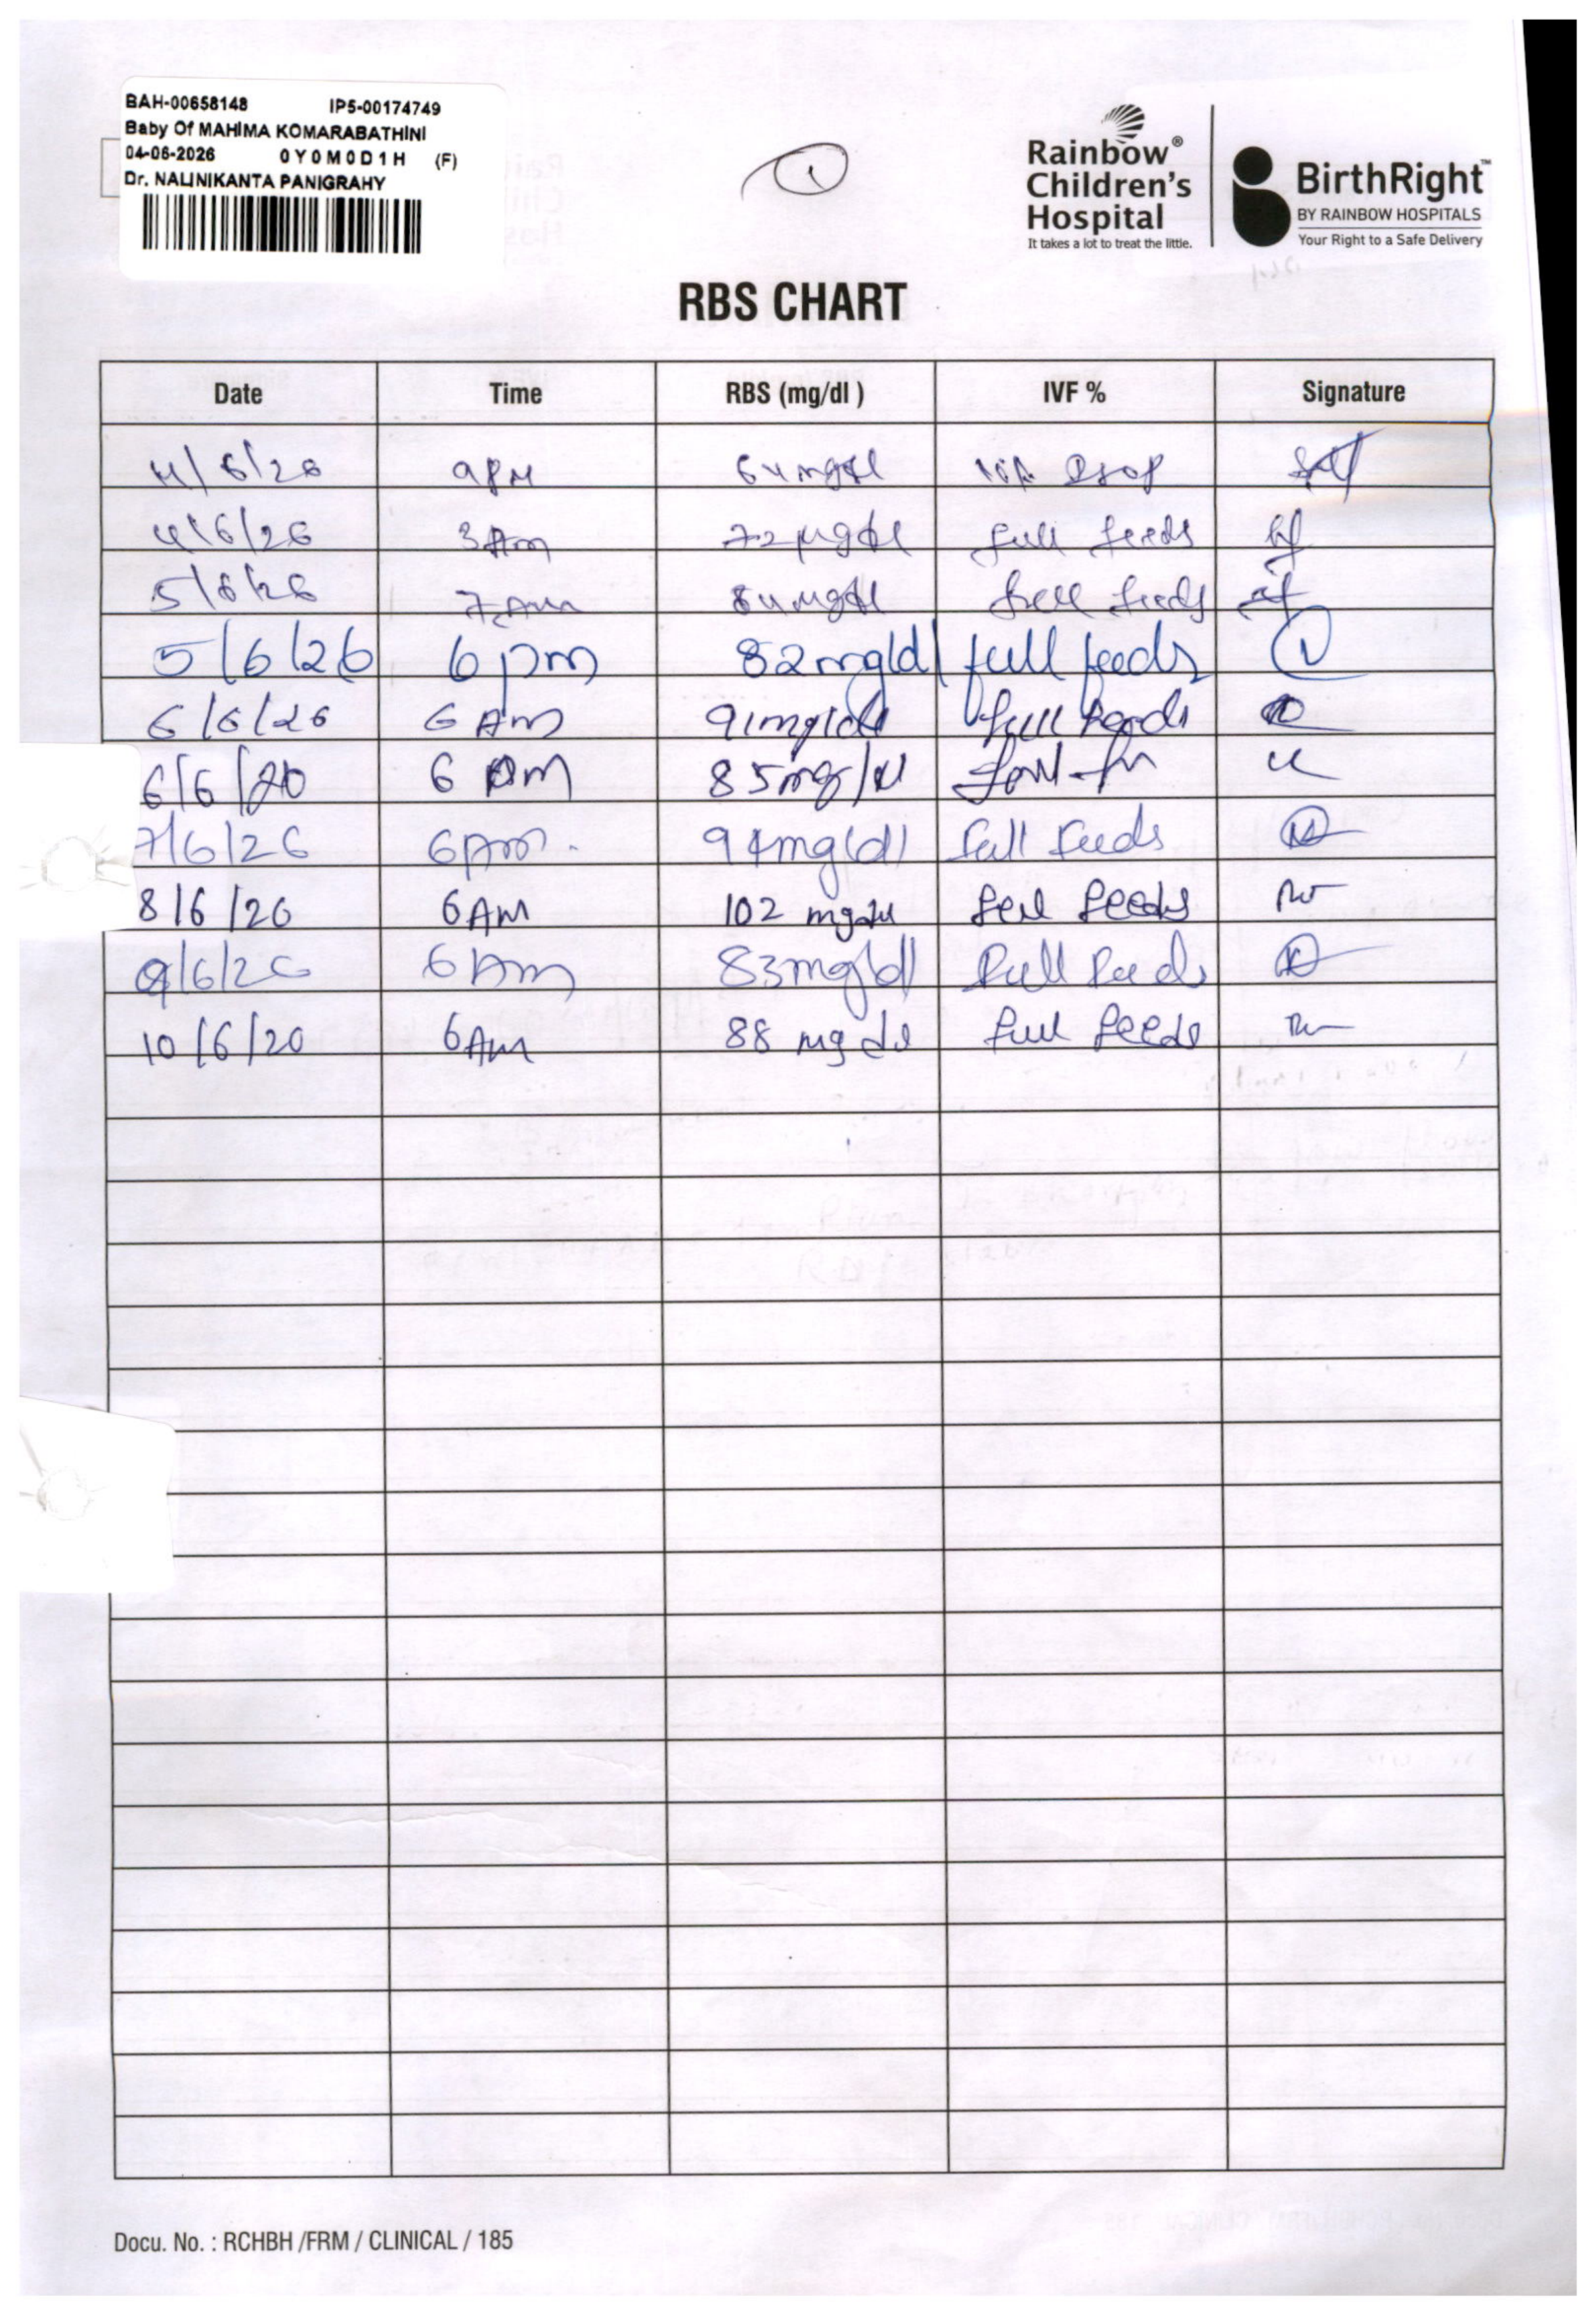 BAH-00658148 IP5-00174749
Baby Of MAHIMA KOMARABATHINI
04-06-2026 0Y0M0D1H (F)
Dr. NALINIKANTA PANIGRAHY
1
Rainbow®
Children's
Hospital
It takes a lot to treat the little.
BirthRight™
BY RAINBOW HOSPITALS
Your Right to a Safe Delivery
RBS CHART
Date Time RBS (mg/dl ) IVF % Signature
4/6/26 9PM 64mg/dl
4/6/26 3Am 72mg/dl full feeds
5/6/26 7Am 84mg/dl full feeds
5/6/26 6pm 82mg/dl full feeds
6/6/26 6 Am 91mg/dl full feeds
6/6/20 6 85mg/dl
7/6/26 6Am. 94mg/dl full feeds
8/6/20 6AM 102 mg/dl full feeds
9/6/26 6Am 83mg/dl full feeds
10/6/20 6Am 88 mg dl full feeds
Docu. No. : RCHBH /FRM / CLINICAL / 185